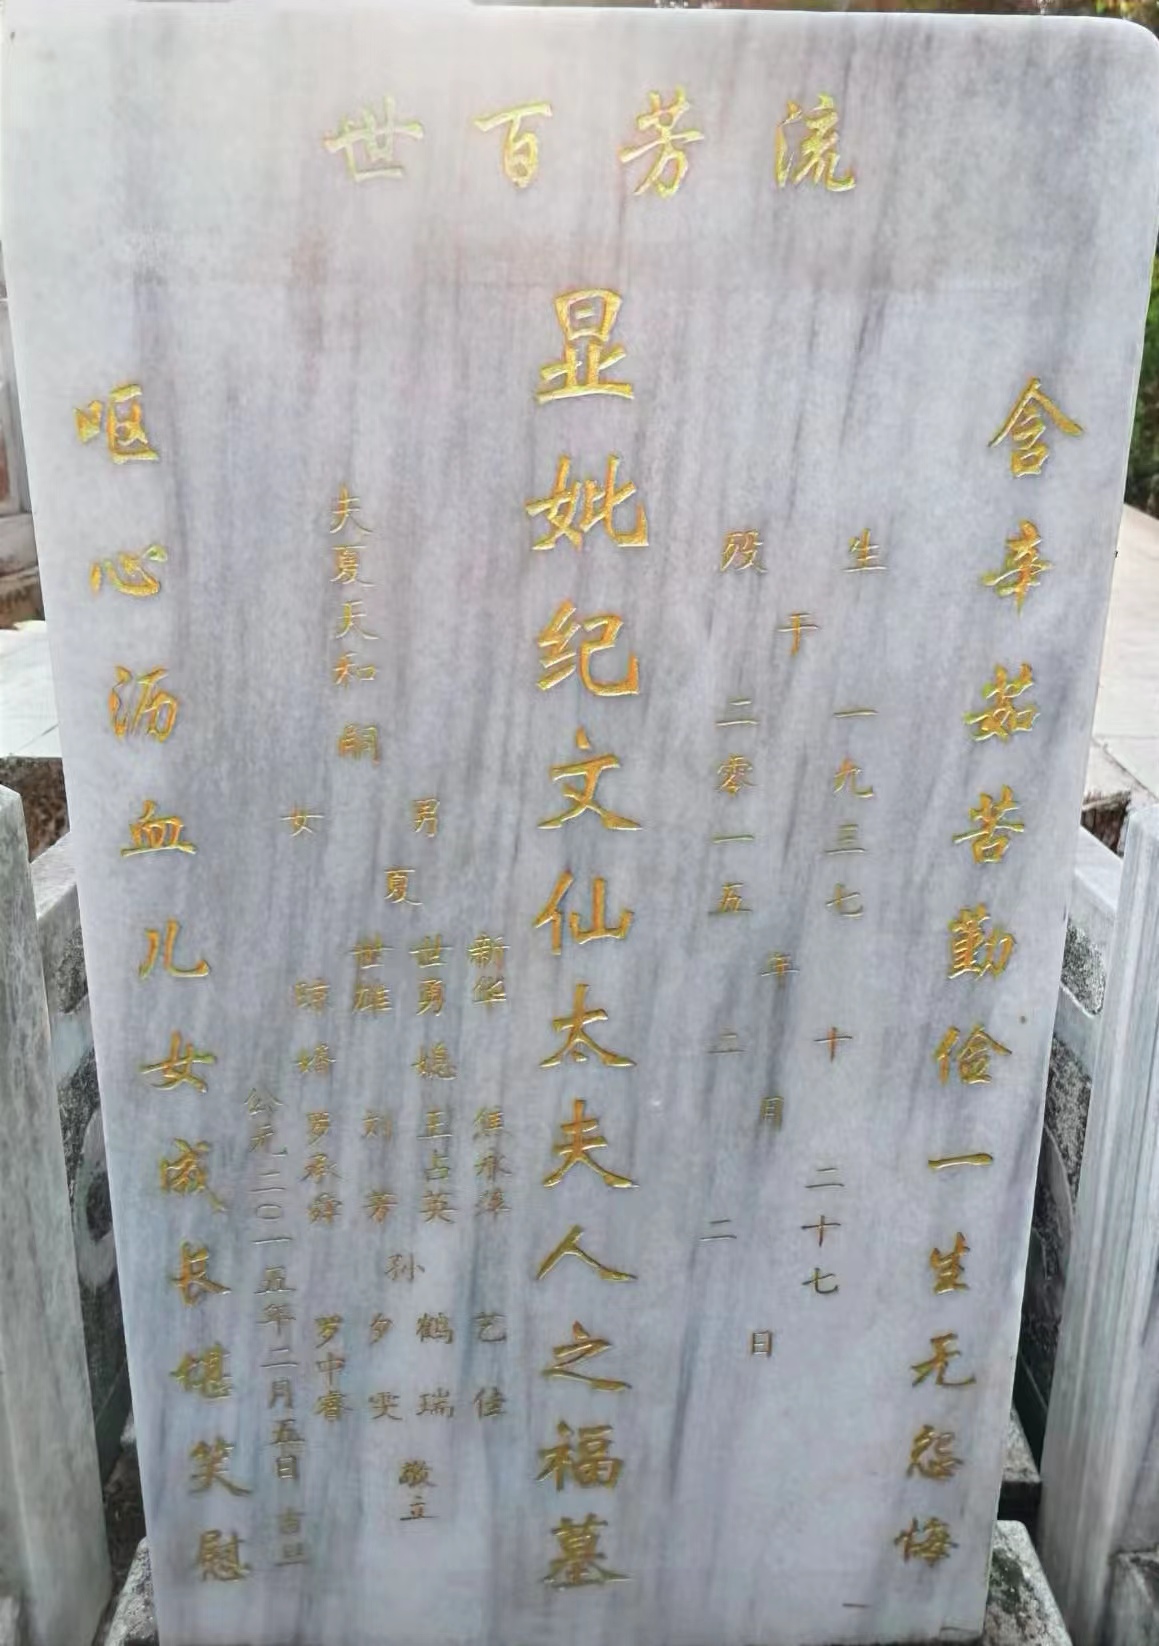 流芳百世
含辛茹苦勤俭一生无怨悔
生于一九三七年十月二十七日
殁于二零一五年二月二日
显妣纪文仙太夫人之福墓
夫夏天和嗣
男夏
新华 世勇 世雄
媳
焦永萍 王占英 刘芳
孙
艺佳 鹤瑞 夕雯
敬立
女
琼婿罗承舜
罗中睿
公元二〇一五年二月五日吉旦
呕心沥血儿女成长堪笑慰